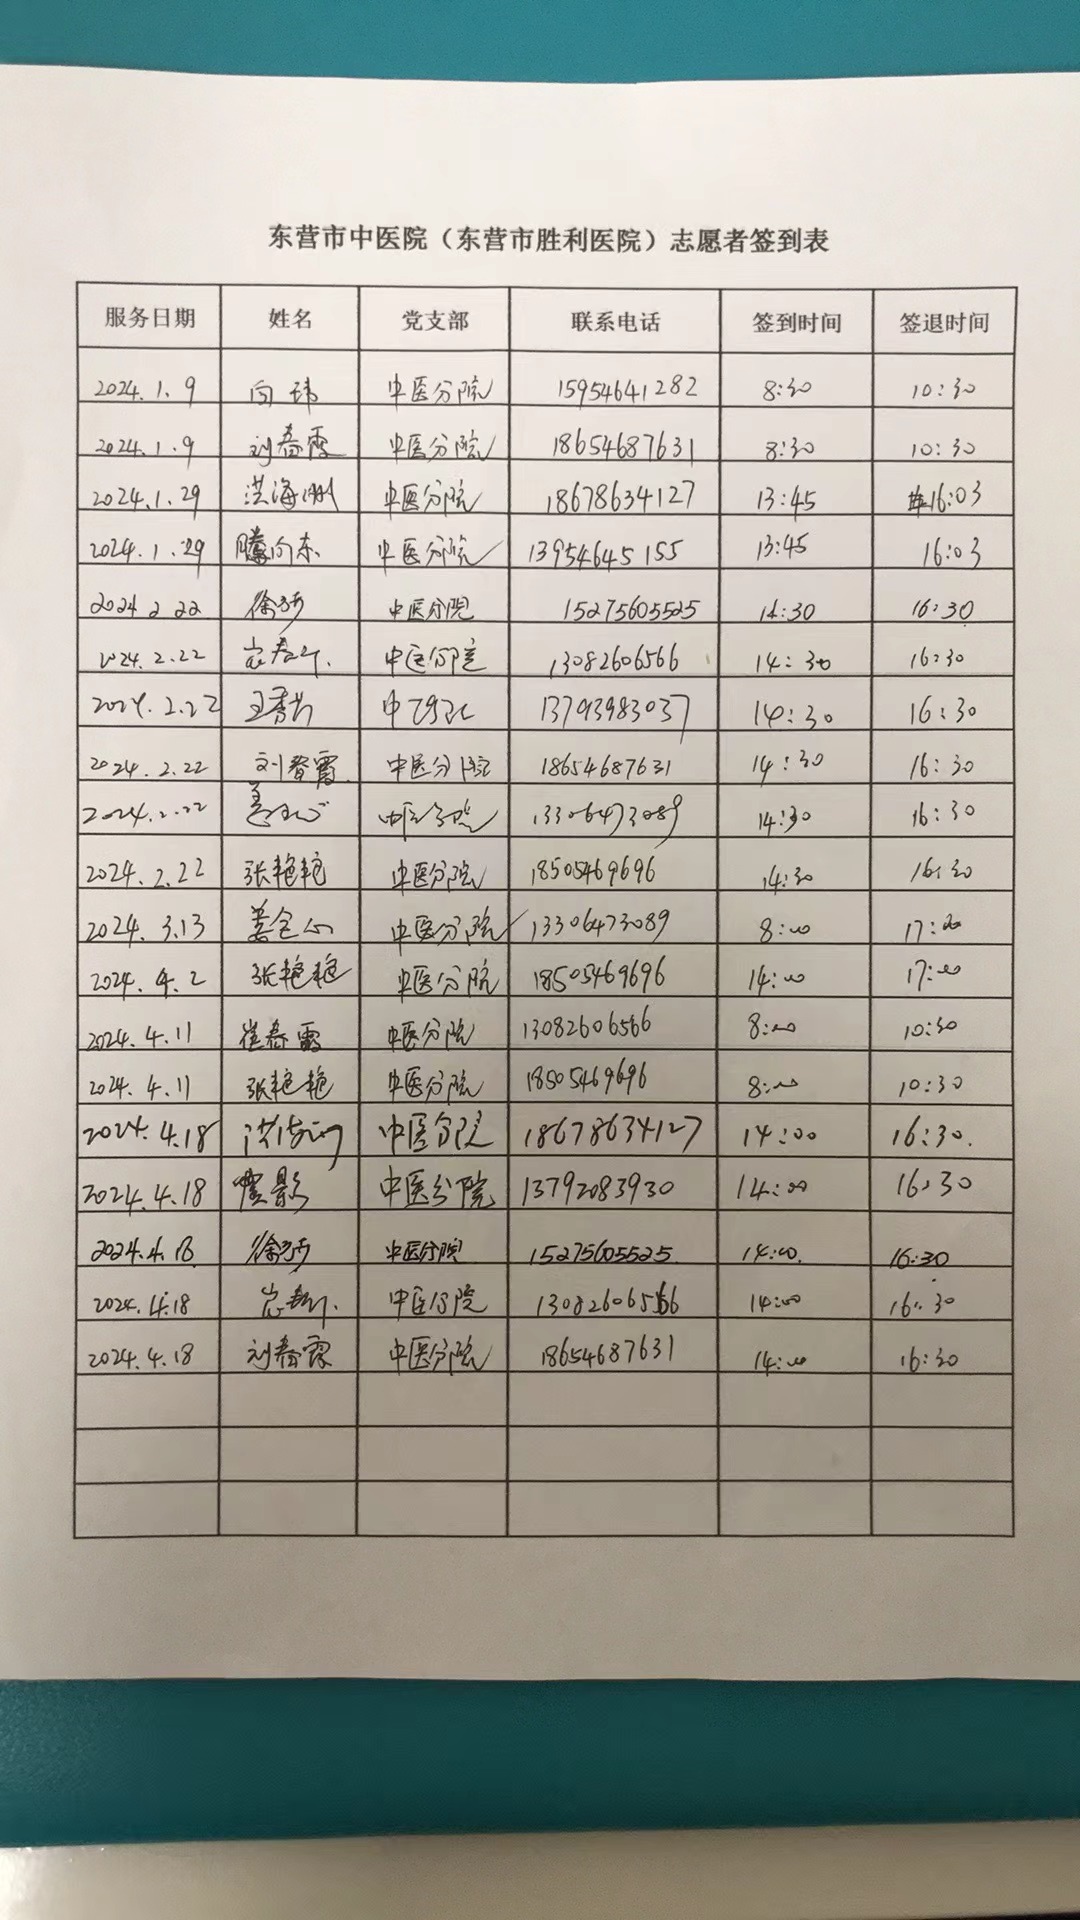 东营市中医院（东营市胜利医院）志愿者签到表
服务日期 姓名 党支部 联系电话 签到时间 签退时间
2024.1.9 向玮 中医分院 15954641282 8:30 10:30
2024.1.9 刘春霞 中医分院 18654687631 8:30 10:30
2024.1.29 洪海洲 中医分院 18678634127 13:45 16:03
2024.1.29 滕向东 中医分院 13954645155 13:45 16:03
2024 2 22 徐 中医分院 15275605525 14:30 16:30
2024.2.22 中医分院 13082606566 14:30 16:30
2024.2.22 王秀芳 13793983037 14:30 16:30
2024.2.22 刘春霞 中医分院 18654687631 14:30 16:30
2024.2.22 中医分院 13306473089 14:30 16:30
2024.2.22 张艳艳 中医分院 18505469696 14:30 16:30
2024.3.13 姜 中医分院 13306473089 8:00 17:00
2024.4.2 张艳艳 中医分院 18505469696 14:00 17:00
2024.4.11 崔春霞 中医分院 13082606566 8:00 10:30
2024.4.11 张艳艳 中医分院 18505469696 8:00 10:30
2024.4.18 洪海洲 中医分院 18678634127 14:00 16:30.
2024.4.18 贾影 中医分院 13792083930 14:00 16:30
2024.4.18 徐 中医分院 15275605525 14:00 16:30
2024.4.18 中医分院 13082606566 14:00 16:30
2024.4.18 刘春霞 中医分院 18654687631 14:00 16:30